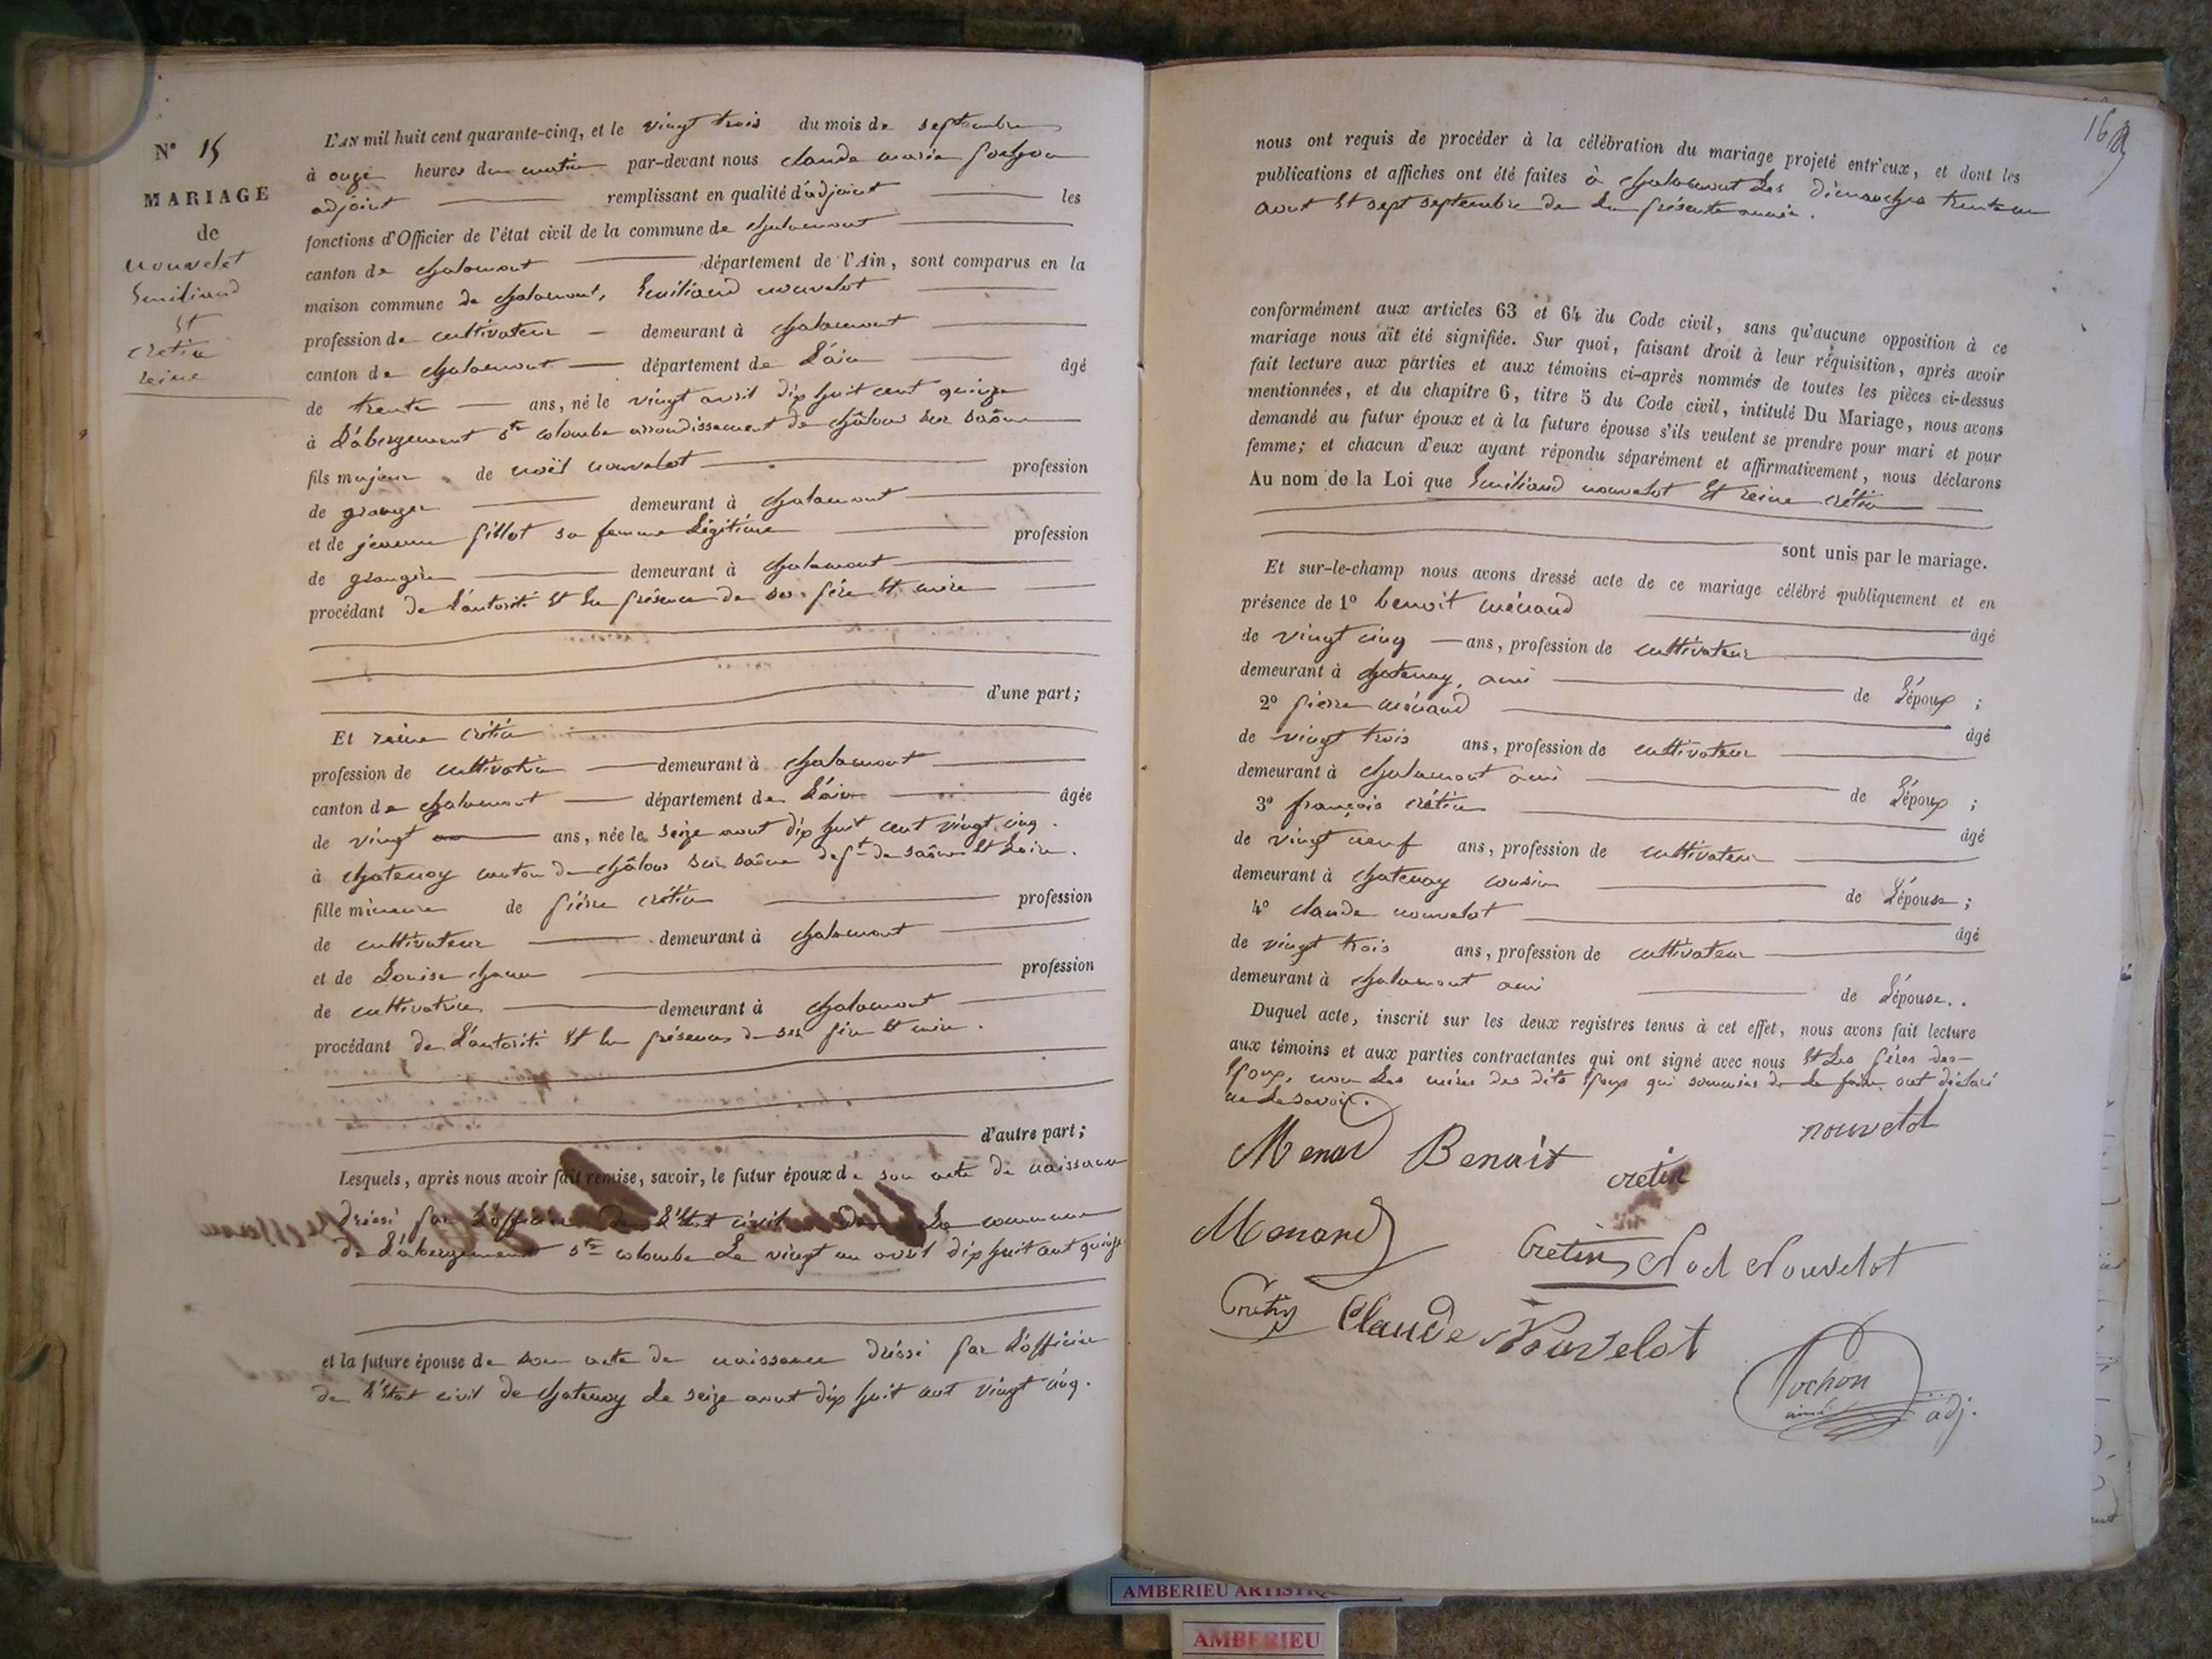 N° 15
MARIAGE
de
nouvelot
Emiliand
Et
crétin
reine
L'AN mil huit cent quarante-cinq, et le vingt trois du mois de septembre
à onze heures du matin par-devant nous claude marie pochon
adjoint remplissant en qualité d'adjoint les
fonctions d'Officier de l'état civil de la commune de chalamont
canton de chalamont département de l'Ain, sont comparus en la
maison commune de chalamont, Emiliand nouvelot
profession de cultivateur demeurant à chalamont
canton de chalamont département de L'ain âgé
de trente ans, né le vingt avril dix huit cent quinze
à L'abergement Ste colombe arrondissement de châlons sur saône
fils majeur de noël nouvelot profession
de granger demeurant à chalamont
et de jeanne pillot sa femme Légitime profession
de grangère demeurant à chalamont
procédant de L'autorité Et En présence de ses père Et mère
d'une part;
Et reine crétin
profession de cultivatrice demeurant à chalamont
canton de chalamont département de L'ain âgée
de vingt ans, née le seize aout dix huit cent vingt cinq.
à chatenoy canton de châlons sur saône dept de saône Et Loire.
fille mineure de pierre crétin profession
de cultivateur demeurant à chalamont
et de Louise profession
de cultivatrice demeurant à chalamont
procédant de L'autorité Et En présence de ses père Et mère.
d'autre part;
Lesquels, après nous avoir fait remise, savoir, le futur époux de son acte de naissance
dréssé par L'officier de L'Etat civil de La commune
de L'abergement Ste colombe Le vingt un avril dix huit cent quinze
et la future épouse de son acte de naissance dréssé par L'officier
de L'Etat civil de chatenoy Le seize aout dix huit cent vingt cinq.
16
nous ont requis de procéder à la célébration du mariage projeté entr'eux, et dont les
publications et affiches ont été faites à chalamont Les dimanches trente un
aout Et sept septembre de La présente année.
conformément aux articles 63 et 64 du Code civil, sans qu'aucune opposition à ce
mariage nous ait été signifiée. Sur quoi, faisant droit à leur réquisition, après avoir
fait lecture aux parties et aux témoins ci-après nommés de toutes les pièces ci-dessus
mentionnées, et du chapitre 6, titre 5 du Code civil, intitulé Du Mariage, nous avons
demandé au futur époux et à la future épouse s'ils veulent se prendre pour mari et pour
femme; et chacun d'eux ayant répondu séparément et affirmativement, nous déclarons
Au nom de la Loi que Emiliand nouvelot Et reine crétin
sont unis par le mariage.
Et sur-le-champ nous avons dressé acte de ce mariage célébré publiquement et en
présence de 1° benoit ménand
âgé
de vingt cinq ans, profession de cultivateur
demeurant à chatenoy, ami de L'époux ;
2° pierre ménand
âgé
de vingt trois ans, profession de cultivateur
demeurant à chalamont ami de L'époux ;
3° françois crétin
âgé
de vingt neuf ans, profession de cultivateur
demeurant à chatenoy cousin de L'épouse ;
4° claude nouvelot
âgé
de vingt trois ans, profession de cultivateur
demeurant à chalamont ami de L'épouse..
Duquel acte, inscrit sur les deux registres tenus à cet effet, nous avons fait lecture
aux témoins et aux parties contractantes qui ont signé avec nous Et Les pères des
Epoux, non Les mères des dits Epoux qui sommées de Le faire, ont déclaré
ne Le savoir.
nouvelot
Menand Benait
cretin
Menand
Cretin Noel Nouvelot
Cretin Claude Nouvelot
Pochon
ainé adj.
AMBERIEU ARTISTIQUE
AMBERIEU